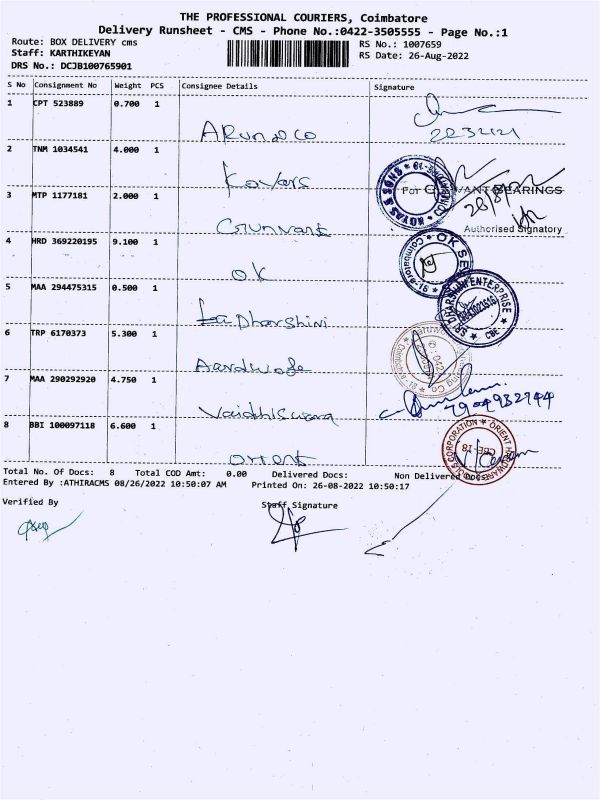 THE PROFESSIONAL COURIERS, Coimbatore
Delivery Runsheet - CMS - Phone No.:0422-3505555 - Page No.:1
Route: BOX DELIVERY cms
RS No.: 1007659
Staff: KARTHIKEYAN
RS Date: 26-Aug-2022
DRS No.: DCJB100765901
S No Consignment No Weight PCS Consignee Details Signature
1 CPT 523889 0.700 1
2 TNM 1034541 4.000 1
Kovais
3 MTP 1177181 2.000 1
Gunvant
4 HRD 369220195 9.100 1
OK
5 MAA 294475315 0.500 1
Dharshini
6 TRP 6170373 5.300 1
7 MAA 290292920 4.750 1
Vaidhiswara
7904982744
8 BBI 100097118 6.600 1
Orient
For BEARINGS
Authorised Signatory
OK SE
Coimbatore-18
SRI DHARSHINI ENTERPRISE
CBE
ORIENT HARDWARE
CBE-18
Total No. Of Docs: 8 Total COD Amt: 0.00 Delivered Docs: Non Delivered Docs:
Entered By :ATHIRACMS 08/26/2022 10:50:07 AM Printed On: 26-08-2022 10:50:17
Verified By Staff Signature